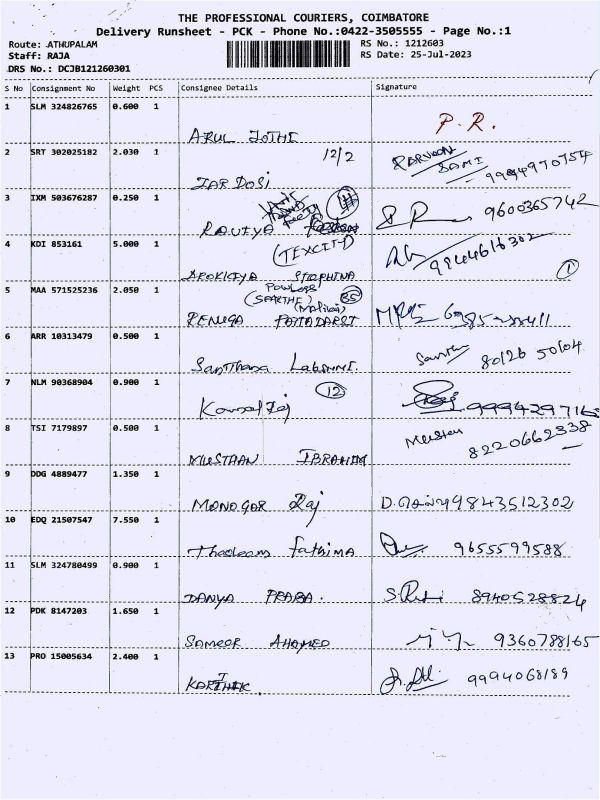 THE PROFESSIONAL COURIERS, COIMBATORE
Delivery Runsheet - PCK - Phone No.:0422-3505555 - Page No.:1
Route: ATHUPALAM RS No.: 1212603
Staff: RAJA RS Date: 25-Jul-2023
DRS No.: DCJB121260301
S No Consignment No Weight PCS Consignee Details Signature
1 SLM 324826765 0.600 1
ARUL JOTHI P.R.
2 SRT 302025182 2.030 1 12/2 PARVEEN
SAMI
ZARDOSI 9994970754
3 IXM 503676287 0.250 1
RAVIYA 9600365742
4 KDI 853161 5.000 1 (TEXCITY) 9944616302
AROKIYA STEPHINA 1
5 MAA 571525236 2.050 1
85
RENUGA
6 ARR 10313479 0.500 1
Santhana Lakshmi. 80126 50104
7 NLM 90368904 0.900 1 12
9994297163
8 TSI 7179897 0.500 1
MUSTHAN IBRAHIM 8220662338
9 DDG 4889477 1.350 1
MONOGAR Raj 9843512302
10 EDQ 21507547 7.550 1
Fathima 9655599588
11 SLM 324780499 0.900 1
DANYA PRABA. 8940528824
12 PDK 8147203 1.650 1
SAMEER AHAMED 9360788165
13 PRO 15005634 2.400 1
KARTHIK. 9994068189